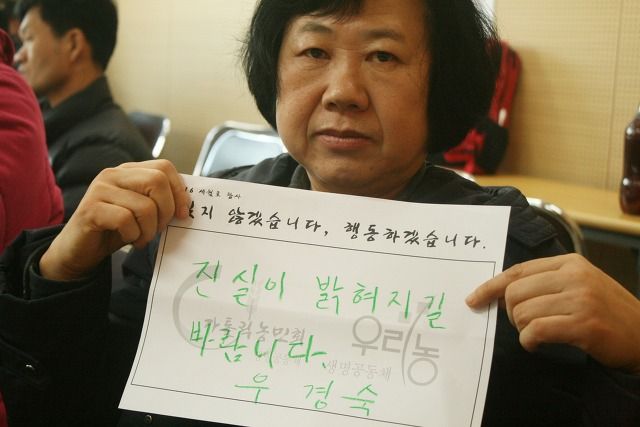 16 세월호 참사
잊지 않겠습니다, 행동하겠습니다.
진실이 밝혀지길
가톨릭농민회
우리농
바랍니다.
생명공동체
우 경 숙